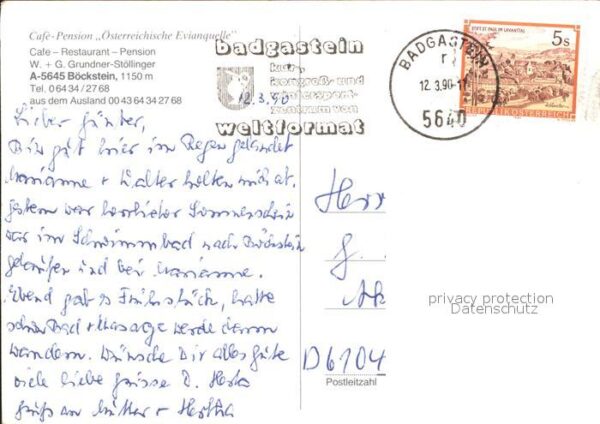 Café-Pension „Österreichische Evianquelle"
Cafe – Restaurant – Pension
W. + G. Grundner-Stöllinger
A-5645 Böckstein, 1150 m
Tel. 0 64 34 / 27 68
aus dem Ausland 00 43 64 34 27 68
badgastein
kur-,
kongreß- und
wintersport-
zentrum von
weltformat
BADGASTEIN
12.3.90
5640
5s
STIFT ST. PAUL IM LAVANTTAL
REPUBLIK ÖSTERREICH
12.3.90
Lieber Günter,
Bin gut hier im Regen gelandet
Marianne + Walter holten mich ab.
Gestern war herrlicher Sonnenschein
war im Schwimmbad nach Böckstein
gelaufen und bei Marianne.
Eben gab es Frühstück, hatte
schon Bad + Massage werde dann
wandern. Wünsche Dir alles Gute
viele liebe Grüsse D. Herta
Gruß an Mutter + Hertha
Herr
G.
D6104
Postleitzahl
privacy protection
Datenschutz